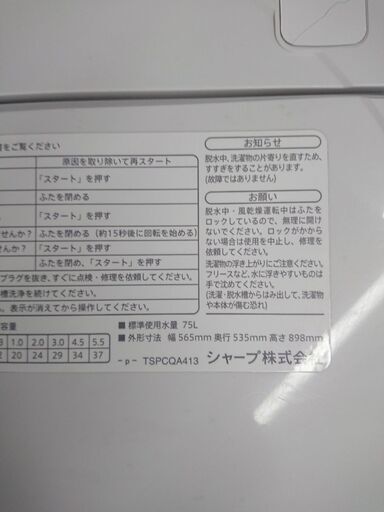 をご覧ください
原因を取り除いて再スタート
「スタート」を押す
ふたを閉める
「スタート」を押す
せんか？ ふたを閉める（約15秒後に回転を始める）
ませんか？ 「スタート」を押す
プラグを抜き、すぐに点検・修理を依頼してください。
槽洗浄を続けてください。
、表示が消えてから操作してください。
お知らせ
脱水中、洗濯物の片寄りを直すため、
すすぎをすることがあります。
(故障ではありません)
お願い
脱水中・風乾燥運転中はふたを
ロックしているので、無理に開け
ないでください。ロックがかから
ない場合は使用を中止し、修理を
依頼してください。
洗濯物の浮き上がりにご注意ください。
フリースなど、水に浮きやすいものは
手で沈めてください。
(洗濯・脱水槽からはみ出して、洗濯物
や本体が傷む恐れ)
容量
1.0 2.0 3.0 4.5 5.5
20 24 29 34 37
■ 標準使用水量 75L
■ 外形寸法 幅 565mm 奥行 535mm 高さ 898mm
-p- TSPCQA413 シャープ株式会